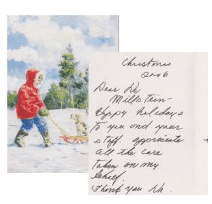 Christmas
2006
Dear Dr
Happy holidays
to you and your
staff. appreciate
all the care
taken on my
behalf.
Thank you